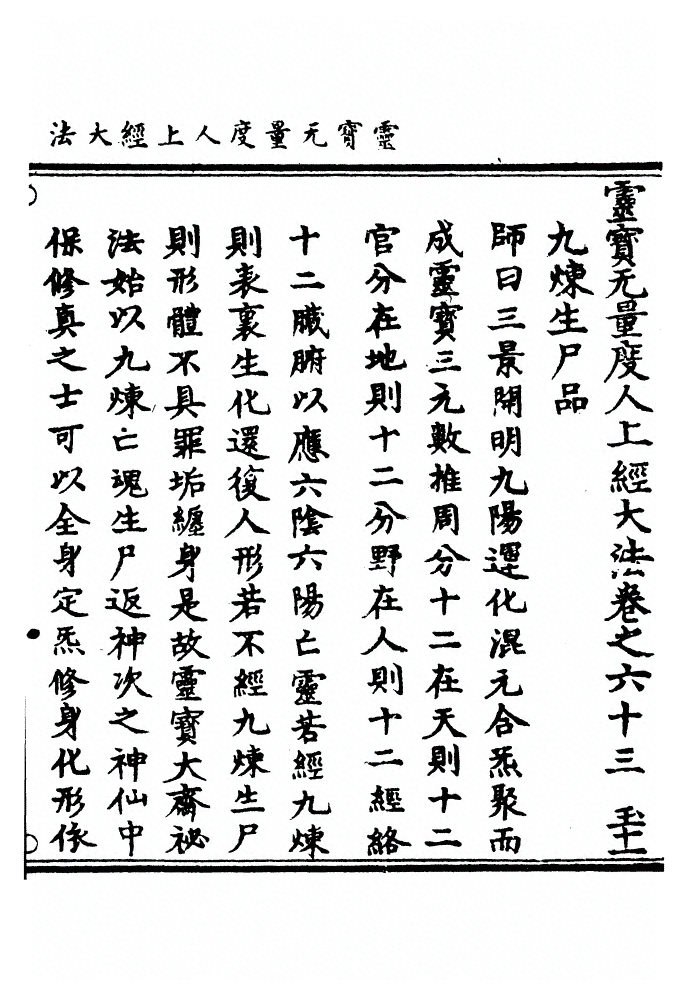 靈寳无量度人上經大法
靈寳无量度人上經大法卷之六十三 𤣥十一
九煉生尸品
師曰三景開明九陽運化混元合炁聚而
成靈寳三元數推周分十二在天則十二
官分在地則十二分野在人則十二經絡
十二臟腑以應六陰六陽亡靈若經九煉
則表裏生化還復人形若不經九煉生尸
則形體不具罪垢纏身是故靈寳大齋祕
法始以九煉亡魂生尸返神次之神仙中
保修真之士可以全身定炁修身化形依